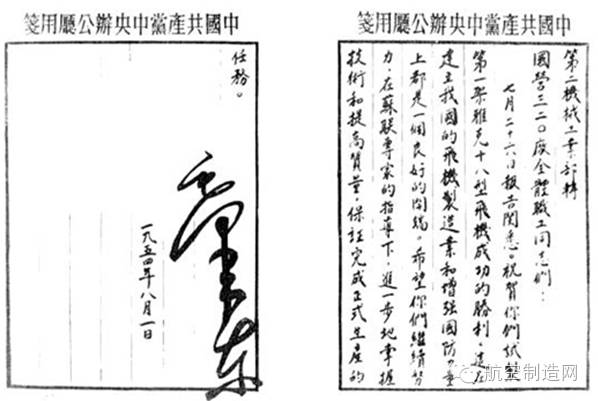 中國共產黨中央辦公廳用箋
第二機械工業部轉
國營三二〇廠全體職工同志們：
七月二十六日報告閱悉。祝賀你們試製
第一架雅克十八型飛機成功的勝利，這在
建立我國的飛機製造業和增强國防力量
上都是一個良好的開端。希望你們繼續努
力，在蘇聯專家的指導下，進一步地掌握
技術和提高質量，保證完成正式生產的
中國共產黨中央辦公廳用箋
任務。
毛澤東
一九五四年八月一日
航空制造网